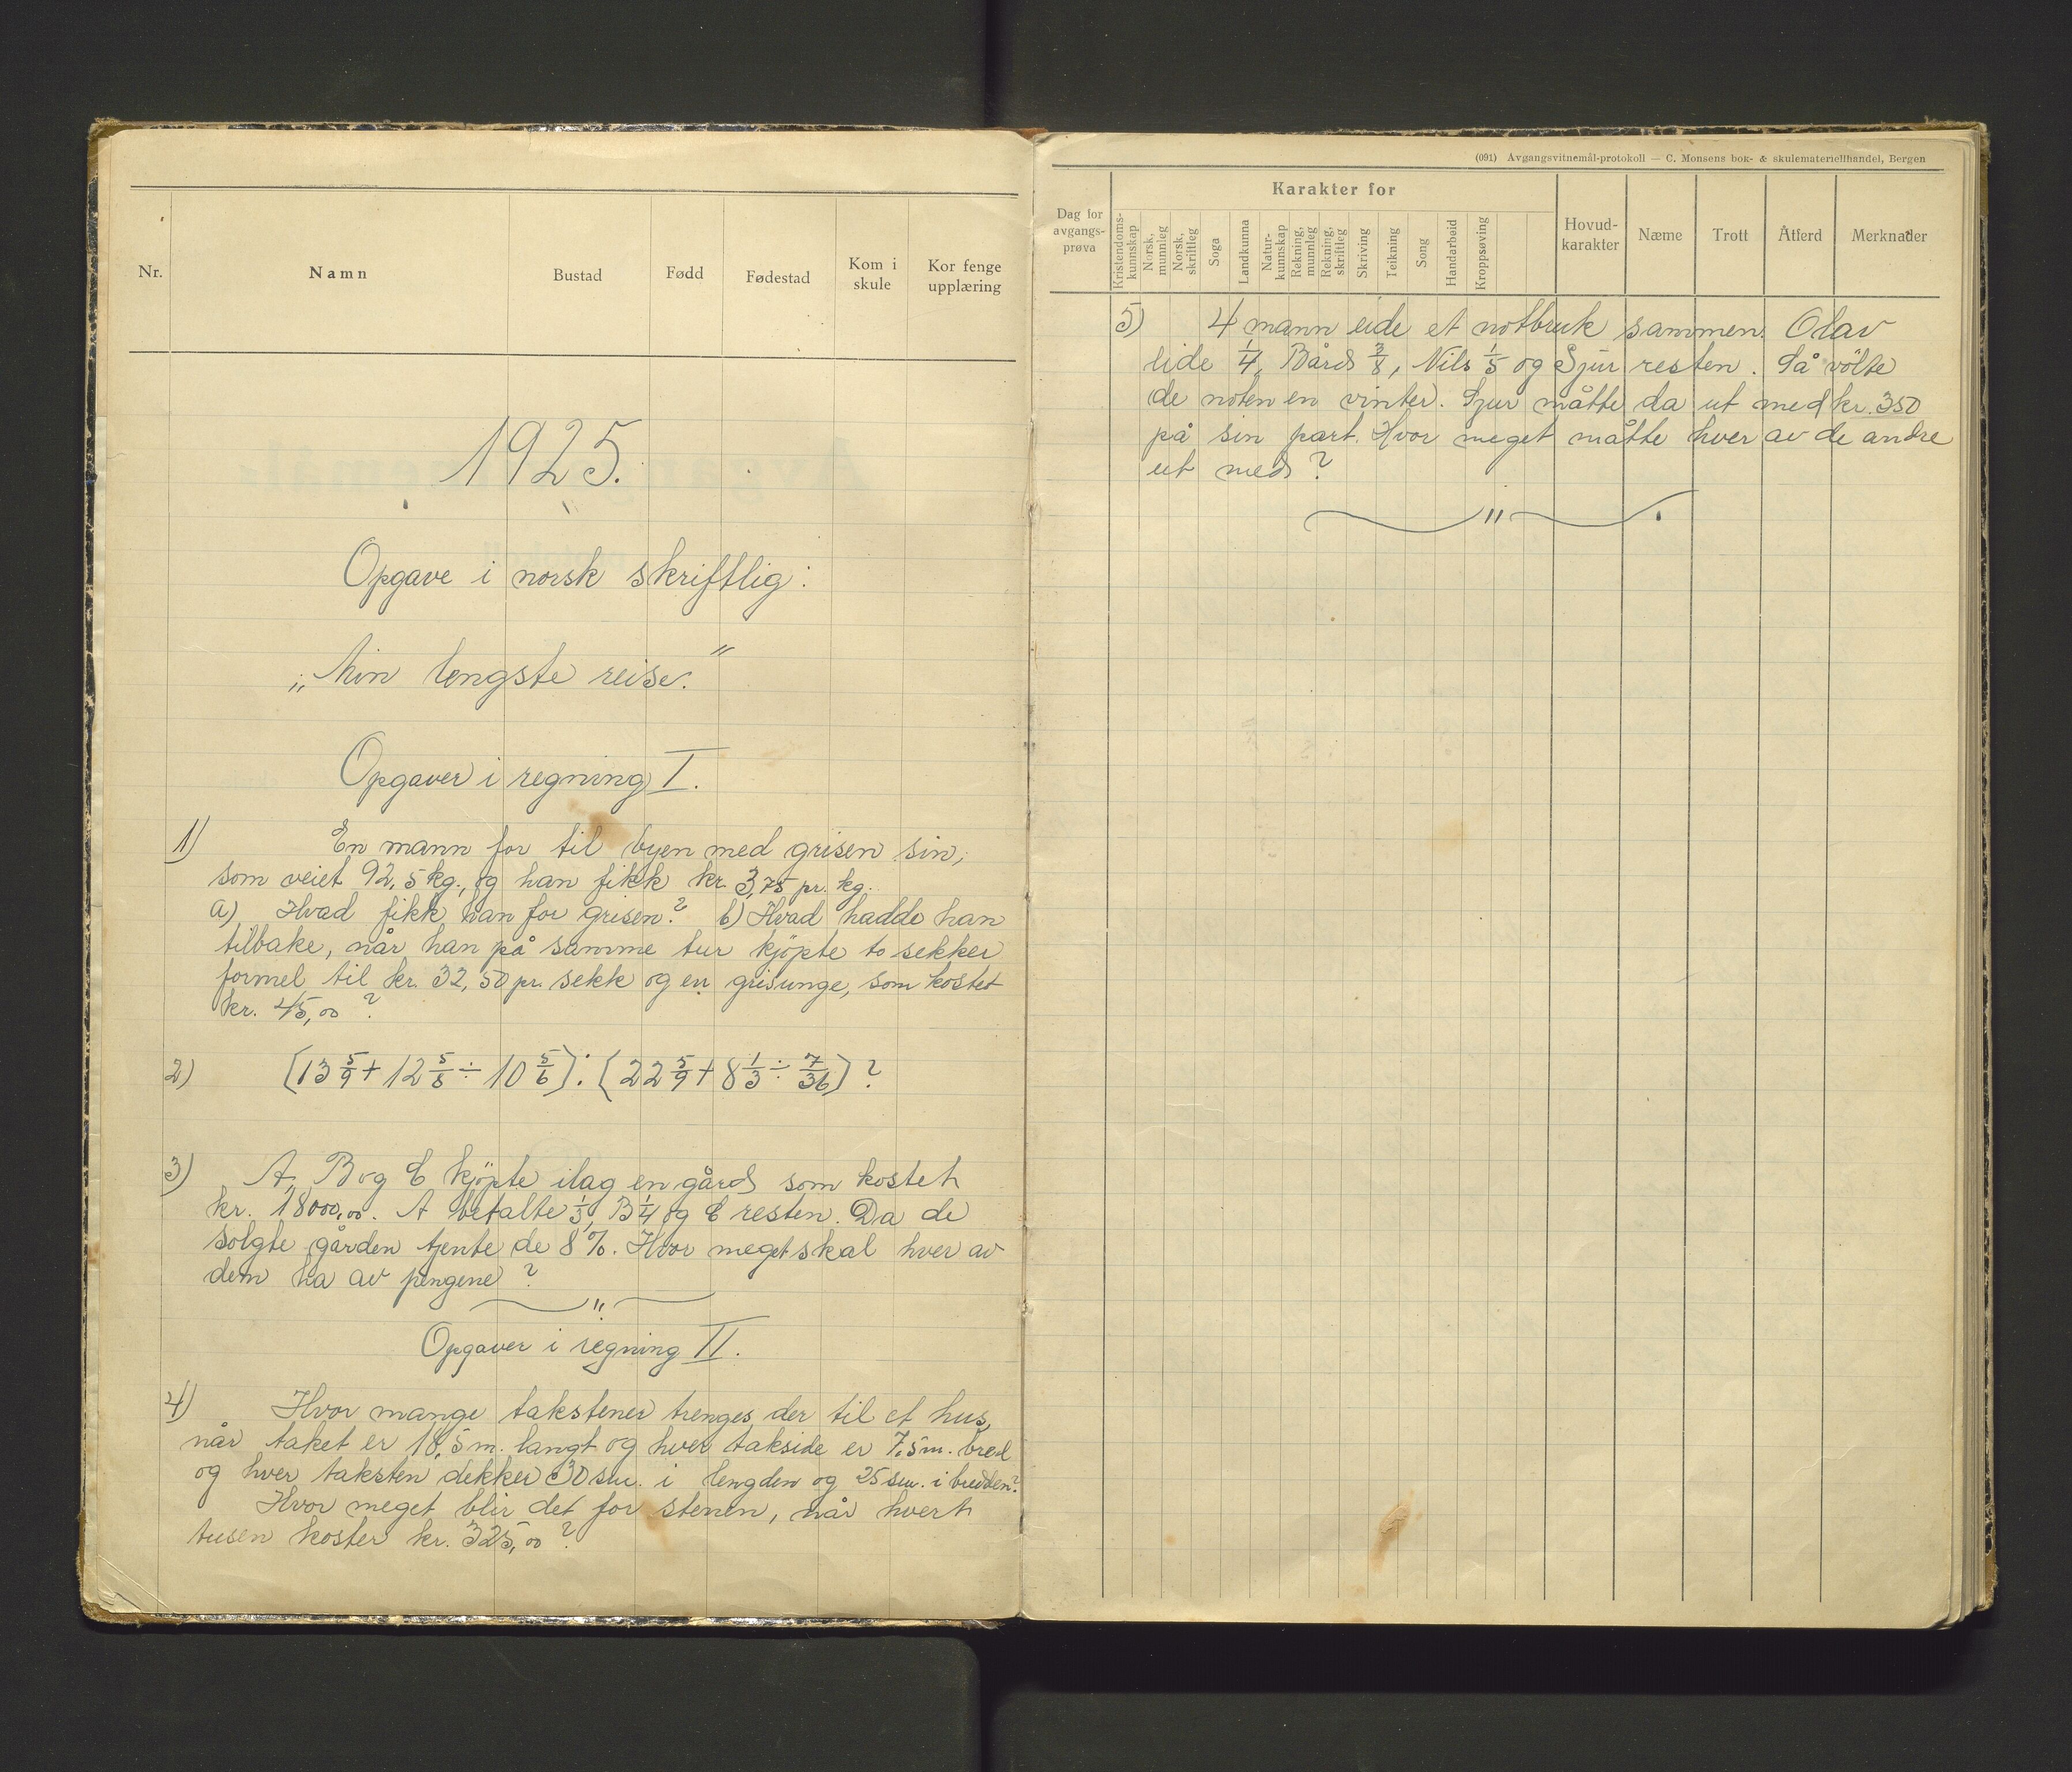 Nr.
Namn
Bustad
Fødd
Fødestad
Kom i skule
Kor fenge upplæring
1925.
Opgave i norsk skriftlig:
„Min lengste reise."
Opgaver i regning I.
1) En mann for til byen med grisen sin,
som veiet 92,5 kg., og han fikk kr. 3,75 pr. kg.
a) Hvad fikk han for grisen? b) Hvad hadde han
tilbake, når han på samme tur kjöpte to sekker
formel til kr. 32,50 pr. sekk og en grisunge, som kostet
kr. 45,00?
2) (13 5/9 + 12 5/8 ÷ 10 5/6) : (22 5/9 + 8 1/3 ÷ 7/36) ?
3) A, B og C kjöpte ilag en gård som kostet
kr. 18000,00. A betalte 1/3, B 1/4 og C resten. Da de
solgte gården tjente de 8%. Hvor meget skal hver av
dem ha av pengene?
Opgaver i regning II.
4) Hvor mange takstener trenges der til et hus,
når taket er 18,5 m. langt og hver takside er 7,5 m. bred
og hver taksten dekker 30 sm. i lengden og 25 sm. i bredden?
Hvor meget blir det for stenen, når hvert
tusen koster kr. 325,00?
(091) Avgangsvitnemål-protokoll — C. Monsens bok- & skulemateriellhandel, Bergen
Dag for avgangsprøva
Karakter for
Kristendomskunnskap
Norsk, munnleg
Norsk, skriftleg
Soga
Landkunna
Naturkunnskap
Rekning, munnleg
Rekning, skriftleg
Skriving
Teikning
Song
Handarbeid
Kroppsøving
Hovudkarakter
Næme
Trott
Åtferd
Merknader
5) 4 mann eide et notbruk sammen. Olav
eide 1/4, Bård 3/8, Nils 1/5 og Sjur resten. Så völte
de noten en vinter. Sjur måtte da ut med kr. 350
på sin part. Hvor meget måtte hver av de andre
ut med?